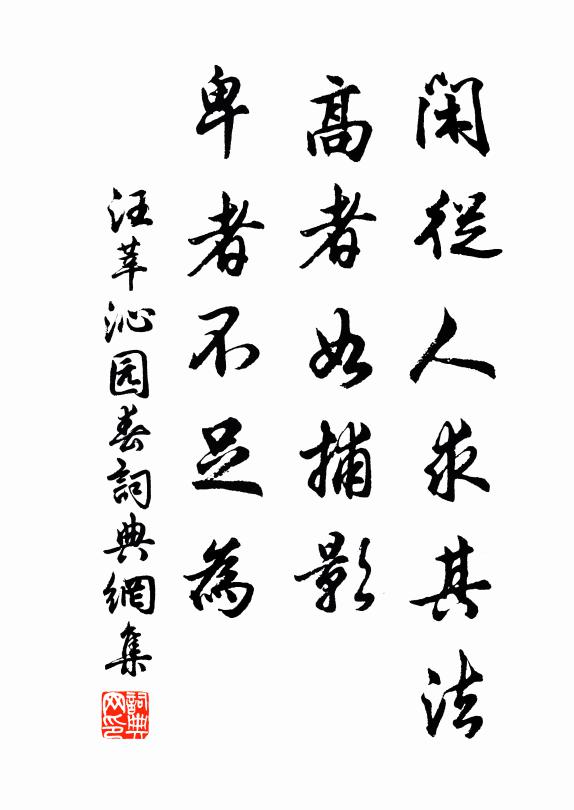 闲從人求其法
高者如捕影
卑者不足為
汪莘沁园春詞典網集
詞典网印